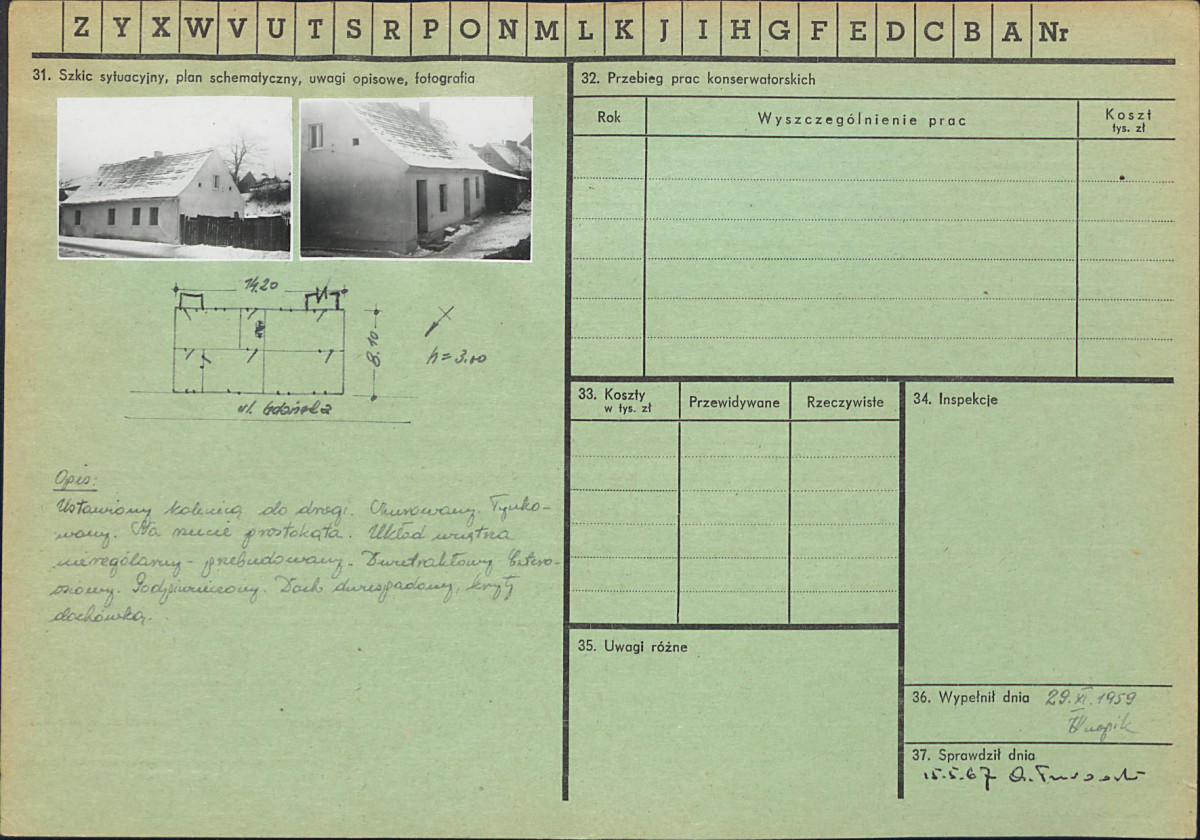 Z Y X W V U T S R P O N M L K J I H G F E D C B A Nr
31. Szkic sytuacyjny, plan schematyczny, uwagi opisowe, fotografia
14.20
8.10
h = 3.00
ul. Gdańska
Opis:
Ustawiony kalenicą do drogi. Murowany. Tynko-
wany. Na rzucie prostokąta. Układ wnętrza
nieregularny - przebudowany. Dwutraktowy
Podpiwniczony. Dach dwuspadowy, kryty
dachówką.
32. Przebieg prac konserwatorskich
Rok Wyszczególnienie prac Koszt
tys. zł
33. Koszty
w tys. zł
Przewidywane Rzeczywiste
34. Inspekcje
35. Uwagi różne
36. Wypełnił dnia 29.XI.1959
37. Sprawdził dnia
15.5.67